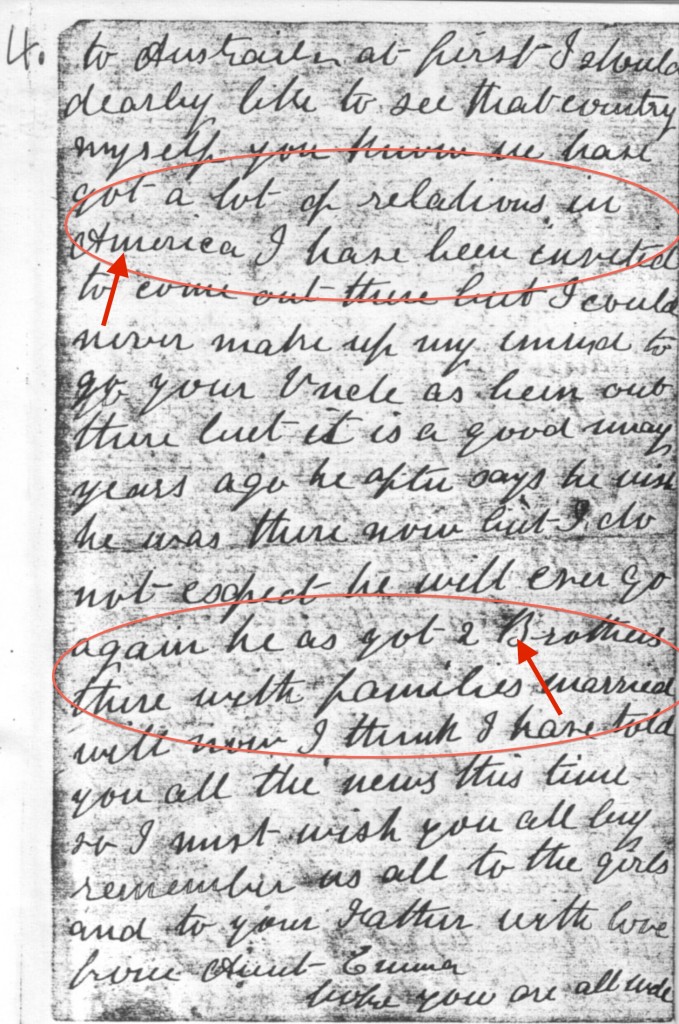 4.
to Australia at first I should
dearly like to see that country
myself you know we have
got a lot of relations in
America I have been invited
to come out there but I could
never make up my mind to
go your Uncle as bein out
there but it is a good many
years ago he often says he wish
he was there now but I do
not expect he will ever go
again he as got 2 Brothers
there with families married
will now I think I have told
you all the news this time
so I must wish you all by
remember us all to the girls
and to your Father with love
from Aunt Emma
hope you are all well